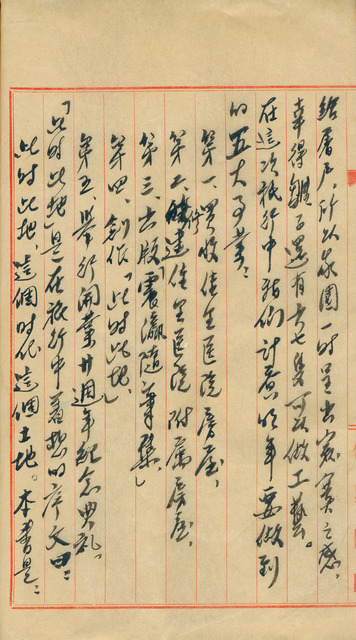 給屠戶，所以家園一時呈出寂寞之感，
幸得雞子還有十七隻可以做工藝。
在這次旅行中我們計意明年要做到
的五大事業：
第一、買收佳里医院房屋，
第二、修建佳里医院附属房屋，
第三、出版「震瀛隨筆集」
第四、創作「此时此地」
第五、舉行開業廿週年紀念典礼，
「此时此地」是在旅行中着想的序文曰：
此时此地、這個时代這個土地。本書是：